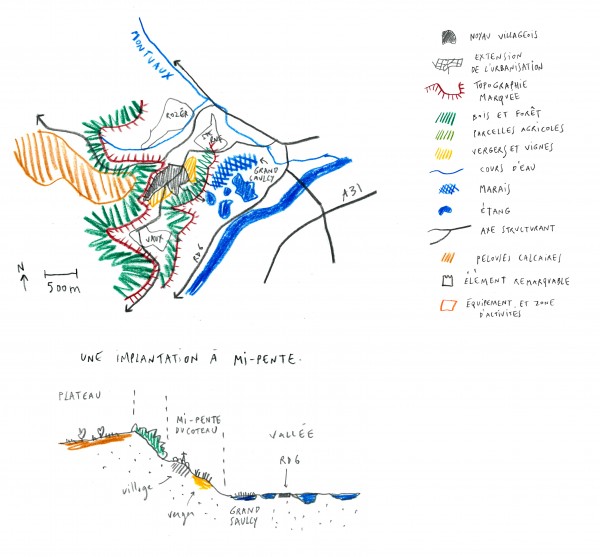 MONTVAUX
ROZÉR
STE
RUFF
GRAND
SAULLY
A31
VAUX
RD6
N
500m
NOYAU VILLAGEOIS
EXTENSION
DE L'URBANISATION
TOPOGRAPHIE
MARQUEE
BOIS ET FORÊT
PARCELLES AGRICOLES
VERGERS ET VIGNES
COURS D'EAU
MARAIS
ÉTANG
AXE STRUCTURANT
PELOUSES CALCAIRES
ÉLÉMENT REMARQUABLE
ÉQUIPEMENT ET ZONE
D'ACTIVITÉS
UNE IMPLANTATION À MI-PENTE.
PLATEAU
MI-PENTE
DU COTEAU
VALLÉE
RD6
village
verger
GRAND
SAULLY